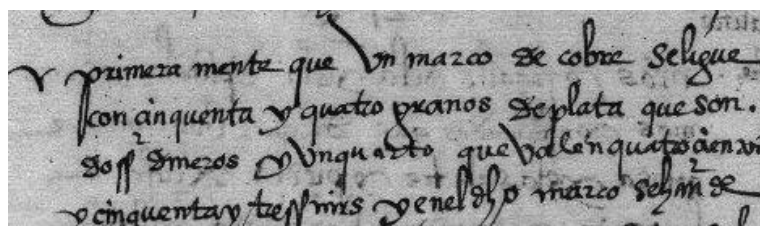 primera mente que Un marco de cobre seligue
con cinquenta y quatro granos deplata que son.
doss dineros y Unquarto que Valen quatrocien
y cinquenta y tress mrs y enel dho marco se